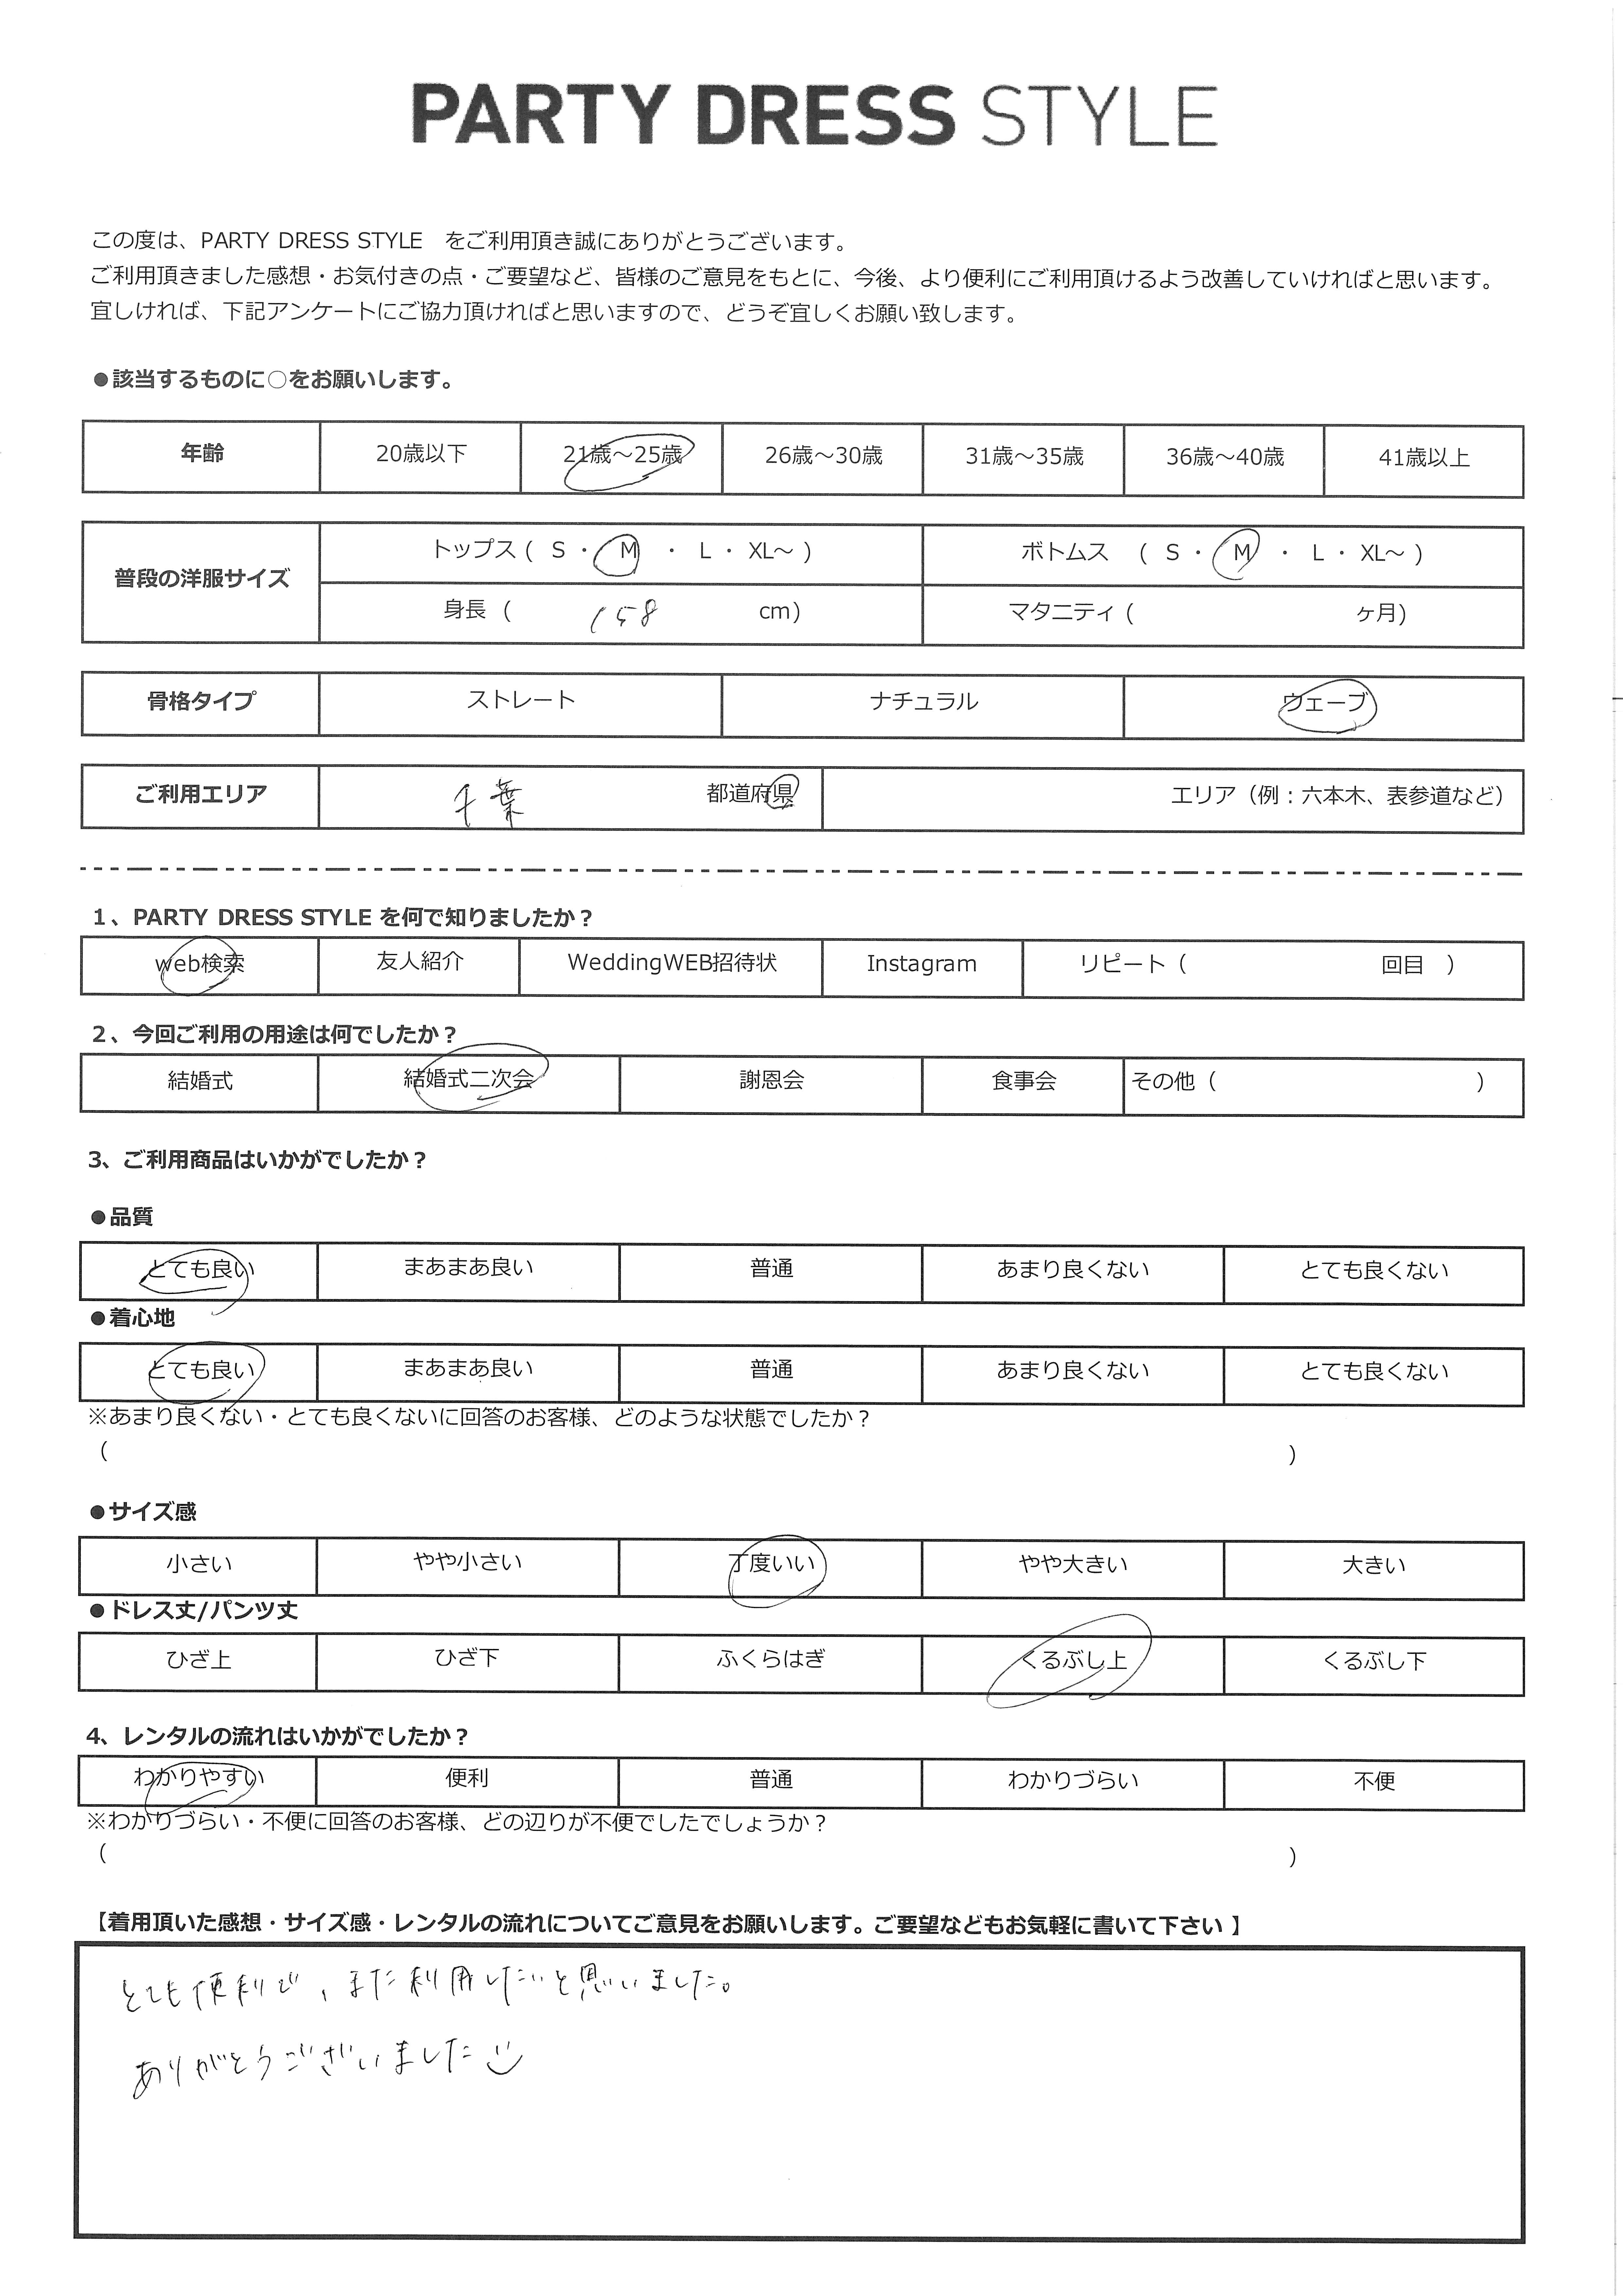 PARTY DRESS STYLE
この度は、PARTY DRESS STYLE をご利用頂き誠にありがとうございます。
ご利用頂きました感想・お気付きの点・ご要望など、皆様のご意見をもとに、今後、より便利にご利用頂けるよう改善していければと思います。
宜しければ、下記アンケートにご協力頂ければと思いますので、どうぞ宜しくお願い致します。
●該当するものに○をお願いします。
年齢 20歳以下 21歳～25歳 26歳～30歳 31歳～35歳 36歳～40歳 41歳以上
普段の洋服サイズ
トップス ( S ・ M ・ L ・ XL～ ) ボトムス ( S ・ M ・ L ・ XL～ )
身長 ( 158 cm) マタニティ ( ヶ月)
骨格タイプ ストレート ナチュラル ウェーブ
ご利用エリア 千葉 都道府県 エリア（例：六本木、表参道など）
1、PARTY DRESS STYLE を何で知りましたか？
web検索 友人紹介 WeddingWEB招待状 Instagram リピート（ 回目 ）
2、今回ご利用の用途は何でしたか？
結婚式 結婚式二次会 謝恩会 食事会 その他（ ）
3、ご利用商品はいかがでしたか？
●品質
とても良い まあまあ良い 普通 あまり良くない とても良くない
●着心地
とても良い まあまあ良い 普通 あまり良くない とても良くない
※あまり良くない・とても良くないに回答のお客様、どのような状態でしたか？
（ ）
●サイズ感
小さい やや小さい 丁度いい やや大きい 大きい
●ドレス丈/パンツ丈
ひざ上 ひざ下 ふくらはぎ くるぶし上 くるぶし下
4、レンタルの流れはいかがでしたか？
わかりやすい 便利 普通 わかりづらい 不便
※わかりづらい・不便に回答のお客様、どの辺りが不便でしたでしょうか？
（ ）
【着用頂いた感想・サイズ感・レンタルの流れについてご意見をお願いします。ご要望などもお気軽に書いて下さい 】
とても便利で、また利用したいと思いました。
ありがとうございました